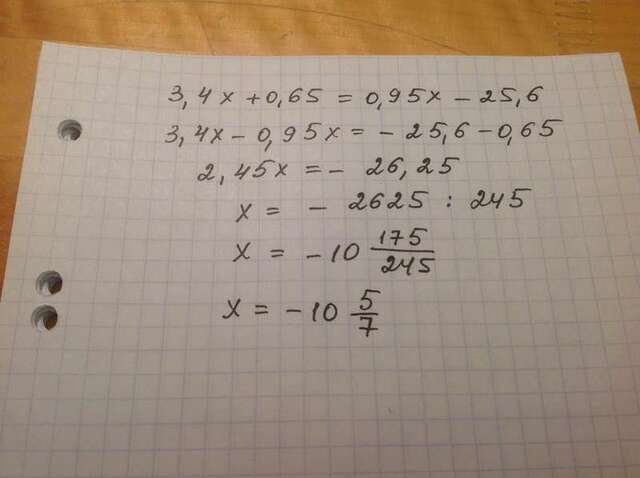 3,4x + 0,65 = 0,95x - 25,6
3,4x - 0,95x = - 25,6 - 0,65
2,45x = - 26,25
x = - 2625 : 245
x = - 10 175/245
x = - 10 5/7